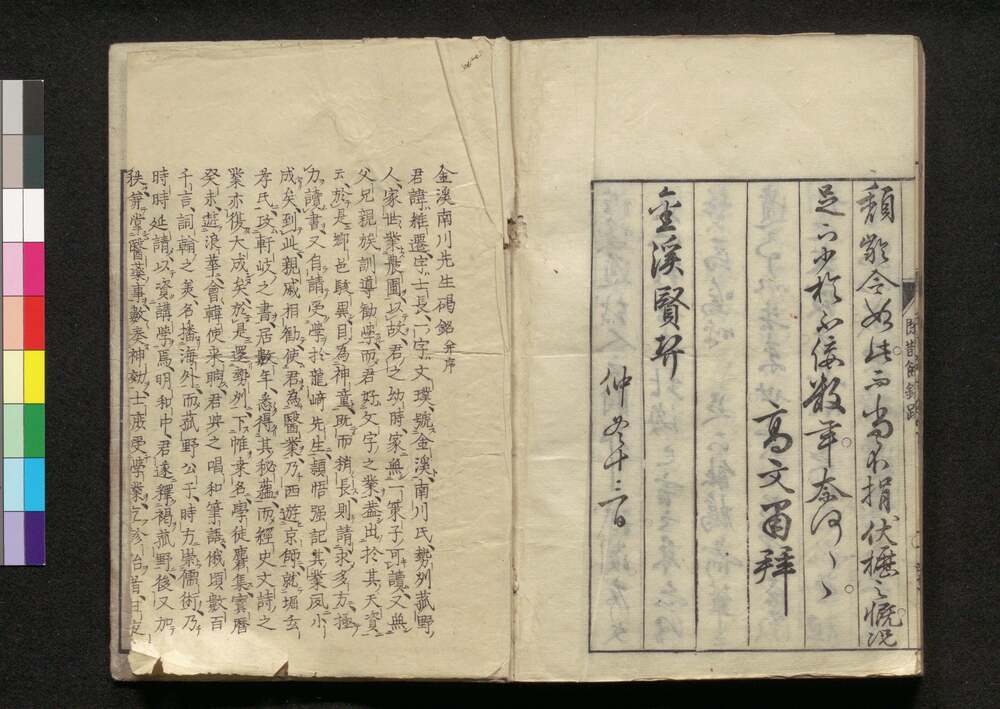 頽齡今如此而尚不捐伏櫪之慨況
足下少於不佞數年奈何〻〻
高文𠷓拜
金溪賢契
仲冬十三日
金溪南川先生碣銘并序
君諱維遷字士長一字文璞號金溪南川氏勢州菰野
人家世業農圃以故君之幼時家無一策子可讀又無
父兄親族訓導勸學而君好文字之業蓋出於其天資
云於是鄉邑駭異目為神童既而稍長則請求多方極
力讀書又自請受學於龍崎先生穎悟强記其業夙小
成矣到此親戚相勸使君為醫業乃西遊京師就堀玄
孝氏攻軒岐之書居數年悉得其秘蘊而經史文詩之
業亦復大成矣於是還勢州下帷業名學徒麕集寳曆
癸未遊浪華會韓使來聘君與之唱和筆語俄頃數百
千言詞翰之美名播海外而菰野公子時方崇儒術乃
時時延請以資講學焉明和中君遂釋褐菰野後又加
秩兼掌醫藥事數奏神効士庶受學業乞診治者